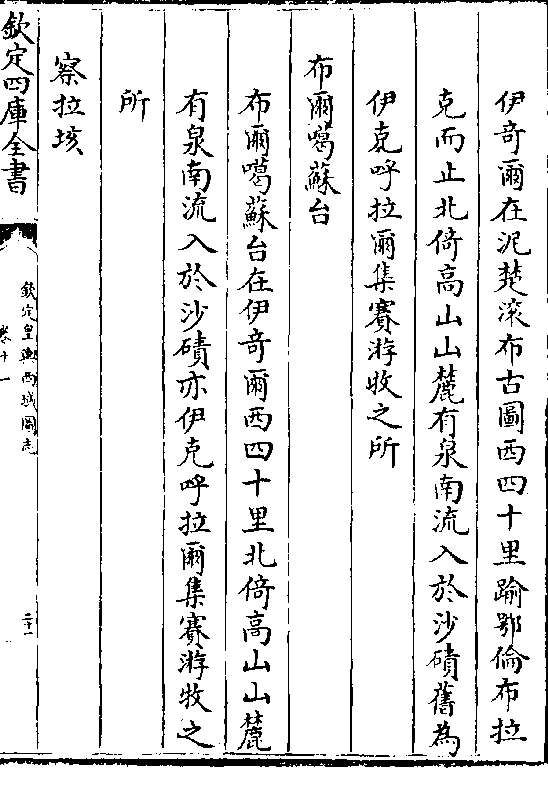 伊奇爾在泥楚滚布古圖西四十里踰鄂倫布拉
克而止北倚髙山山麓有泉南流入於沙磧舊為
伊克呼拉爾集賽游牧之所
布爾噶蘇台
布爾噶蘇台在伊奇爾西四十里北倚髙山山麓
有泉南流入於沙磧亦伊克呼拉爾集賽游牧之
所
察拉垓
欽定四庫全書
欽定皇輿西域圖志
卷十一
二十一